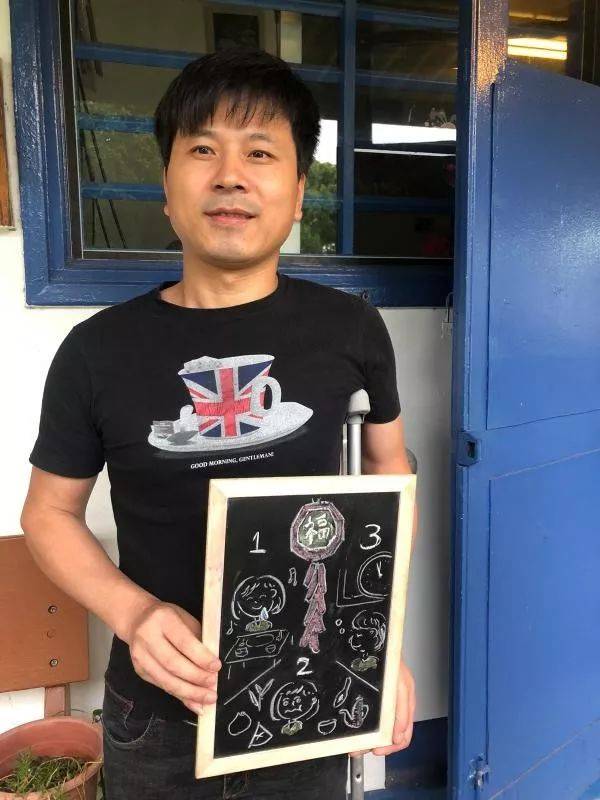 GOOD MORNING, GENTLEMAN!
福
1
3
2